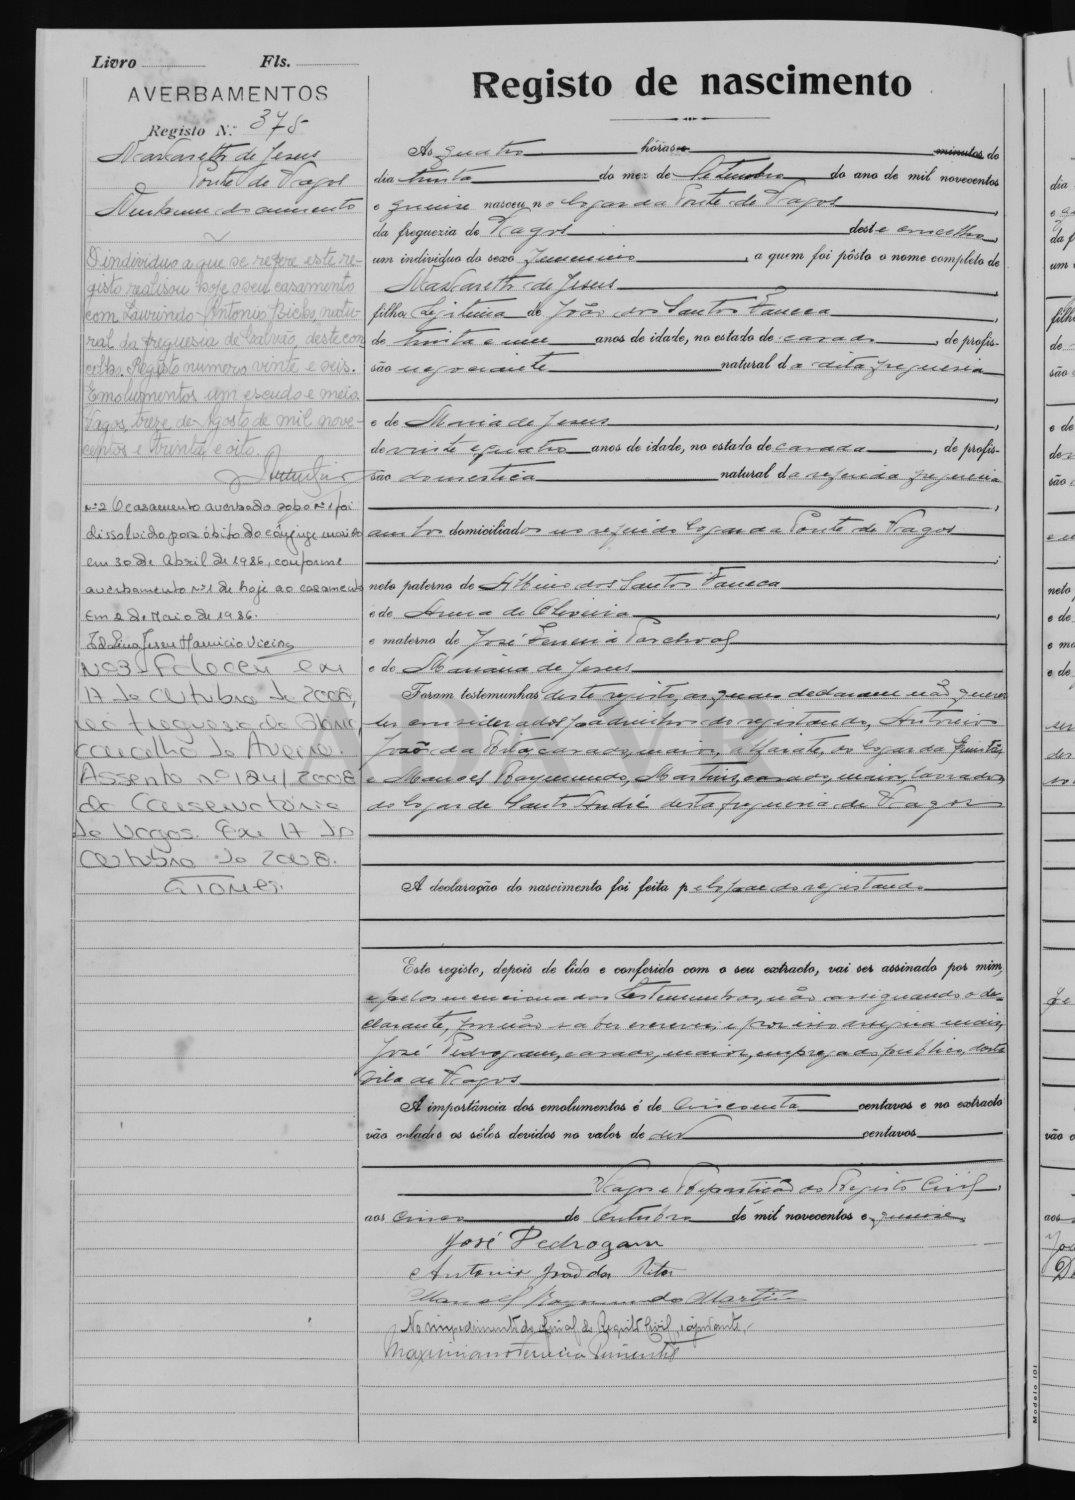 Livro Fls.
AVERBAMENTOS
Registo N.º 375
Nazareth de Jesus
Ponte de Vagos
Nenhum documento
O individuo a que se refere este re-
gisto realisou hoje o seu casamento
com Laurindo Antonio Bicho, natu-
ral da freguesia de Calvão, deste con
celho. Registo numero vinte e seis.
Emolumentos um escudo e meio.
Vagos, treze de Agosto de mil nove-
centos e trinta e oito.
Nº2 O casamento averbado sob o nº1 foi
dissolvido por óbito do cônjuge marido
em 30 de Abril de 1986, conforme
averbamento nº1 de hoje ao casamento
Em 2 de Maio de 1986.
Nº3 - Faleceu em
17 de Outubro de 2008,
na freguesia da Glória,
concelho de Aveiro.
Assento nº 1241/2008
da Conservatória
de Vagos. Em 17 de
Outubro de 2008.
Registo de nascimento
Ás quatro horas e minutos do
dia trinta do mez de Setembro do ano de mil novecentos
e quinze nasceu no logar da Ponte de Vagos,
da freguezia de Vagos deste concelho,
um individuo do sexo femenino, a quem foi pôsto o nome completo de
Nazareth de Jesus,
filha legitima de João dos Santos Faneca,
de trinta e um anos de idade, no estado de casado, de profis-
são negociante natural da dita freguesia,
e de Maria de Jesus,
de vinte e quatro anos de idade, no estado de casada, de profis-
são domestica natural da referida freguesia,
ambos domiciliados no referido logar da Ponte de Vagos;
neto paterno de Albino dos Santos Faneca
e de Anna de Oliveira,
e materno de José Ferreira Parchoal
e de Mariana de Jesus
Foram testemunhas deste registo, as quaes declararam não querer
ser considerados padrinhos do registando, Antonio
João da Rita, casado, maior, alfaiate, do logar da Quintã,
e Manoel Raymundo Martins, casado, maior, lavrador,
do logar de Santo André desta freguesia de Vagos
A declaração do nascimento foi feita pelo pae do registando
Este registo, depois de lido e conferido com o seu extracto, vai ser assinado por mim,
e pelas mencionadas testemunhas, não assignando o de-
clarante, por não saber escrever; e por isso assigna mais,
José Pedrogam, casado, maior, empregado publico, desta
vila de Vagos
A importância dos emolumentos é de cincoenta centavos e no extracto
vão colados os sêlos devidos no valor de dez centavos
Vagos e Repartição do Registo Civil,
aos cinco de Outubro de mil novecentos e quinze.
José Pedrogam
Antonio João da Rita
Manoel Raymundo Martins
No impedimento do oficial do Registo Civil, o ajudante,
Maximiano Ferreira Pimentel
ADAVR
Modelo 101